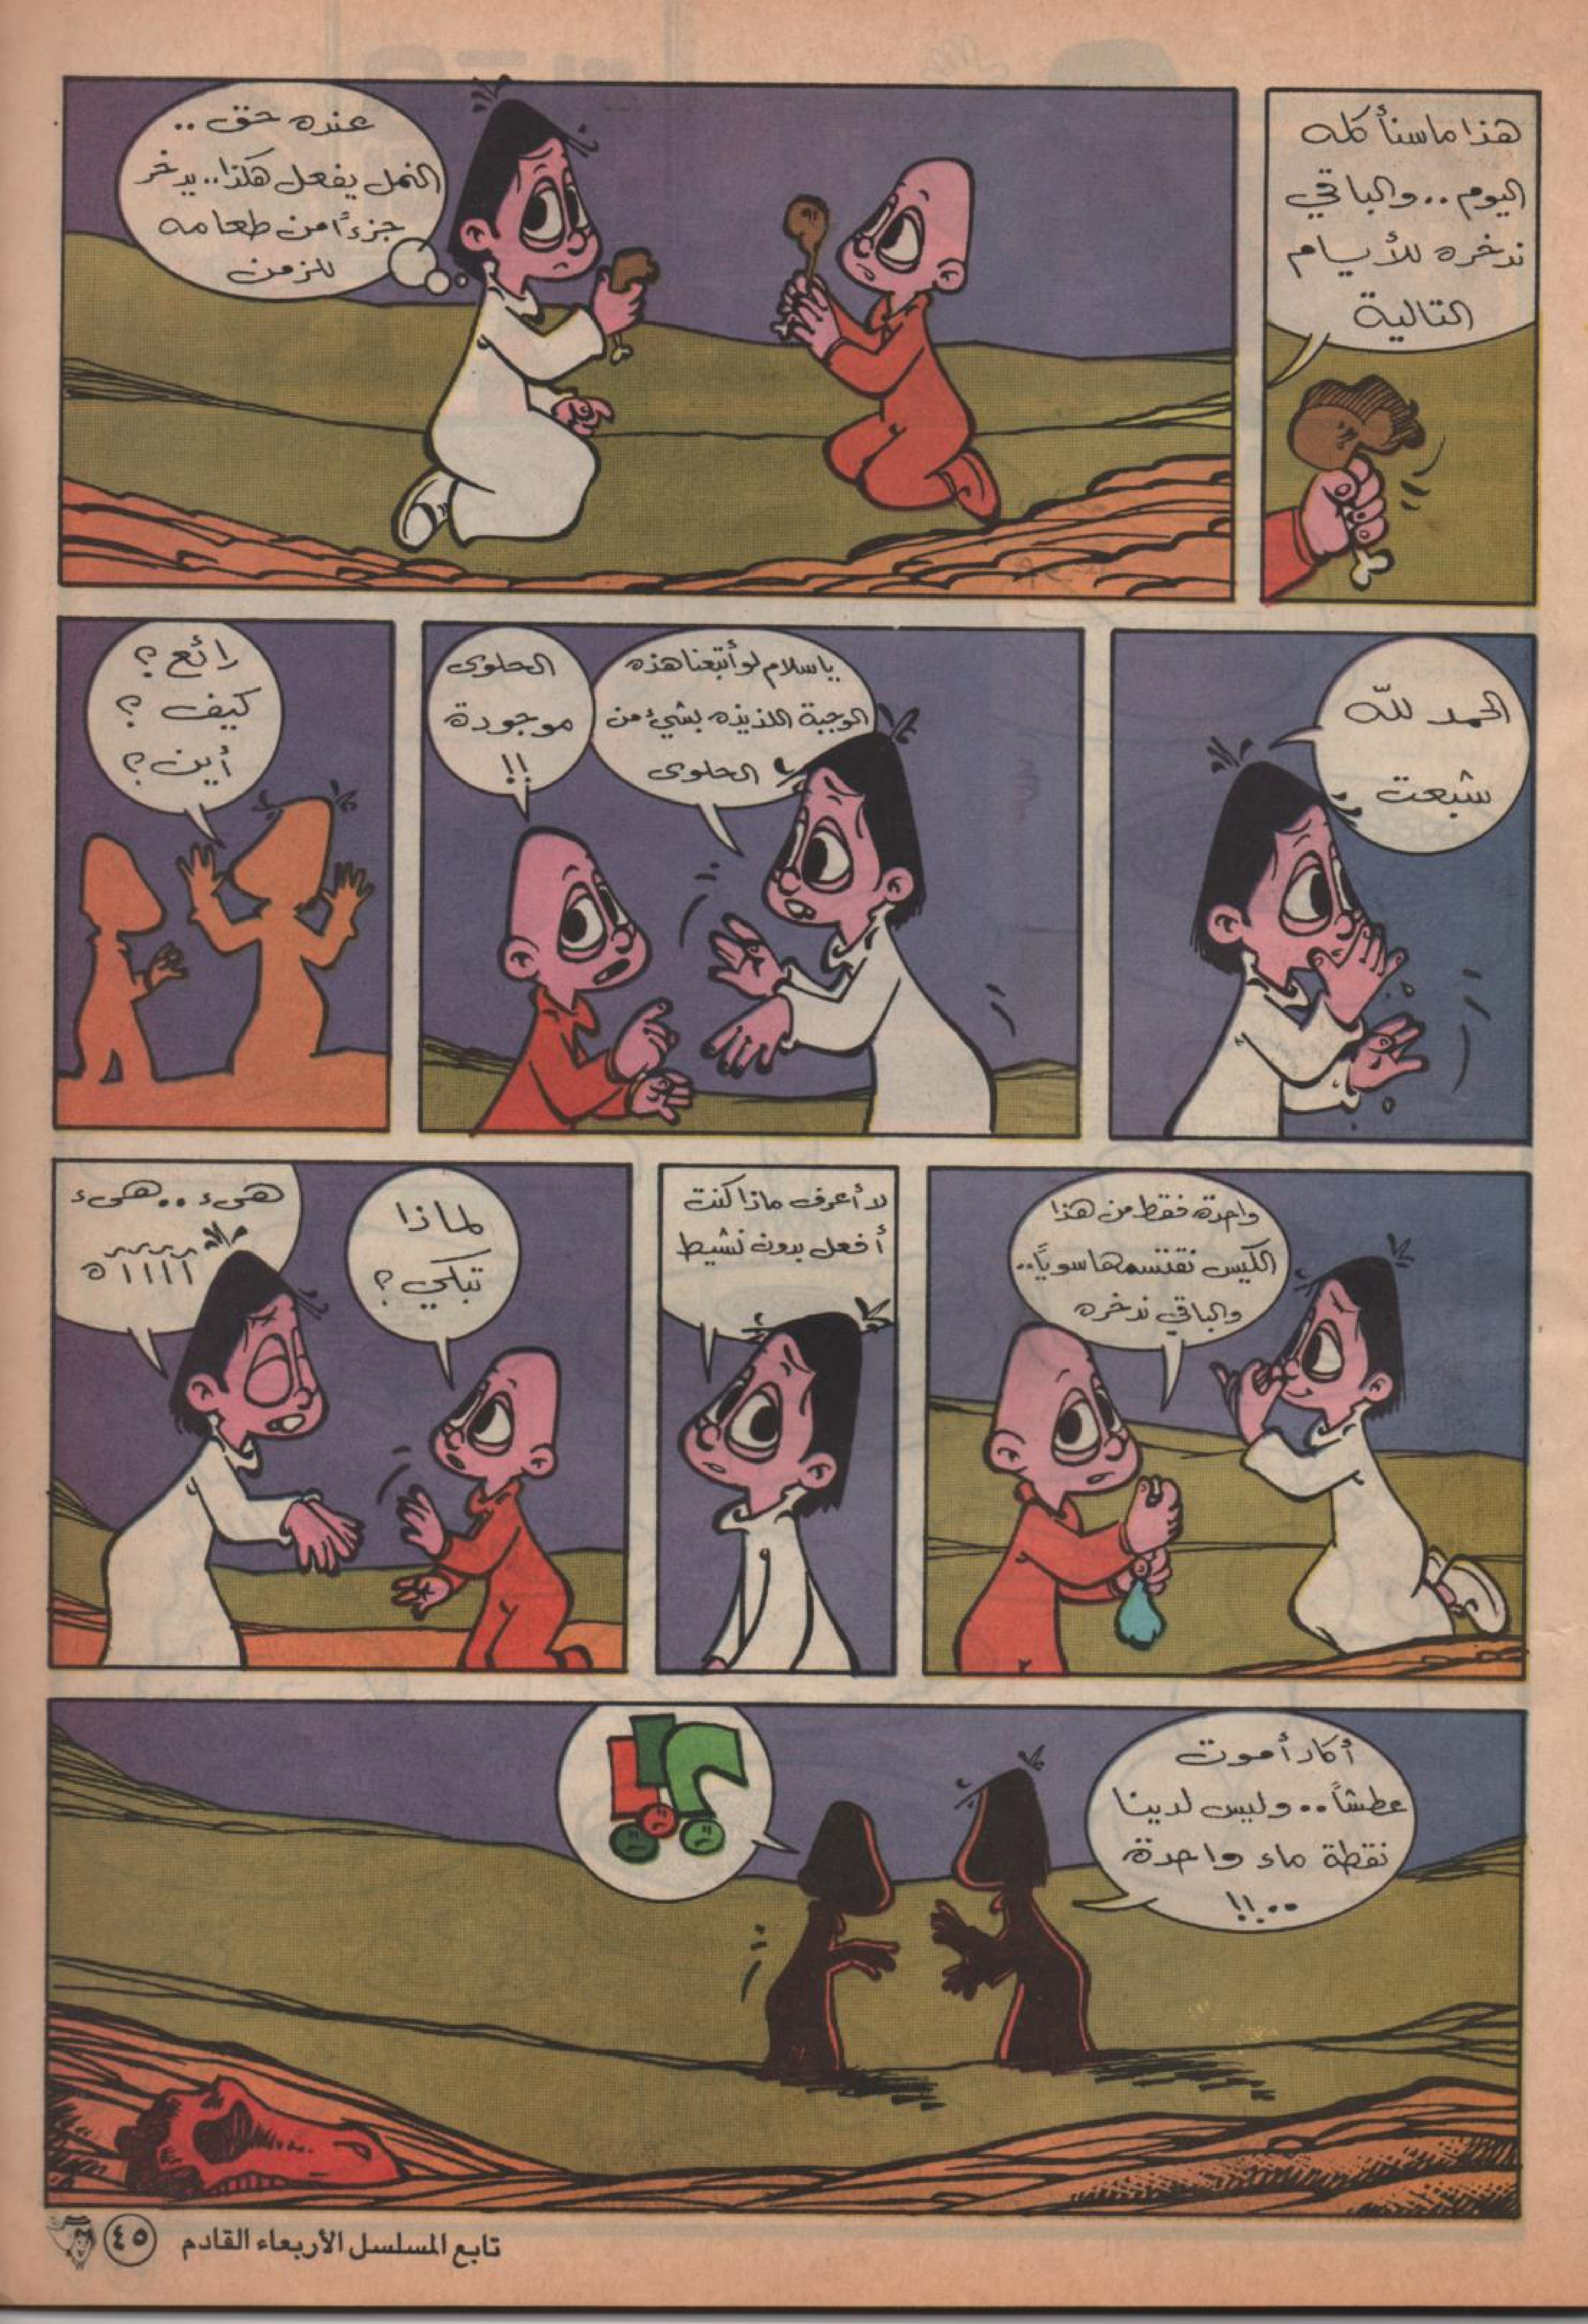 هذا ما سنأكله
اليوم .. والباقي
ندخره للأيام
التالية
عنده حق ..
النمل يفعل هكذا .. يدخر
جزءًا من طعامه
للزمن
الحمد للّه
شبعت
ياسلام لو أتبعنا هذه
الوجبة اللذيذه بشيء من
الحلوى
الحلوى
موجودة
!!
رائع ؟
كيف ؟
أين ؟
واحدة فقط من هذا
الكيس نقتسمها سويًا..
والباقي ندخره
لا أعرف ماذا كنت
أفعل بدون نشيط
لماذا
تبكي ؟
هىء .. هىء
آآآآه
أكاد أموت
عطشاً .. وليس لدينا
نقطة ماء واحدة
..!!
تابع المسلسل الأربعاء القادم
٤٥